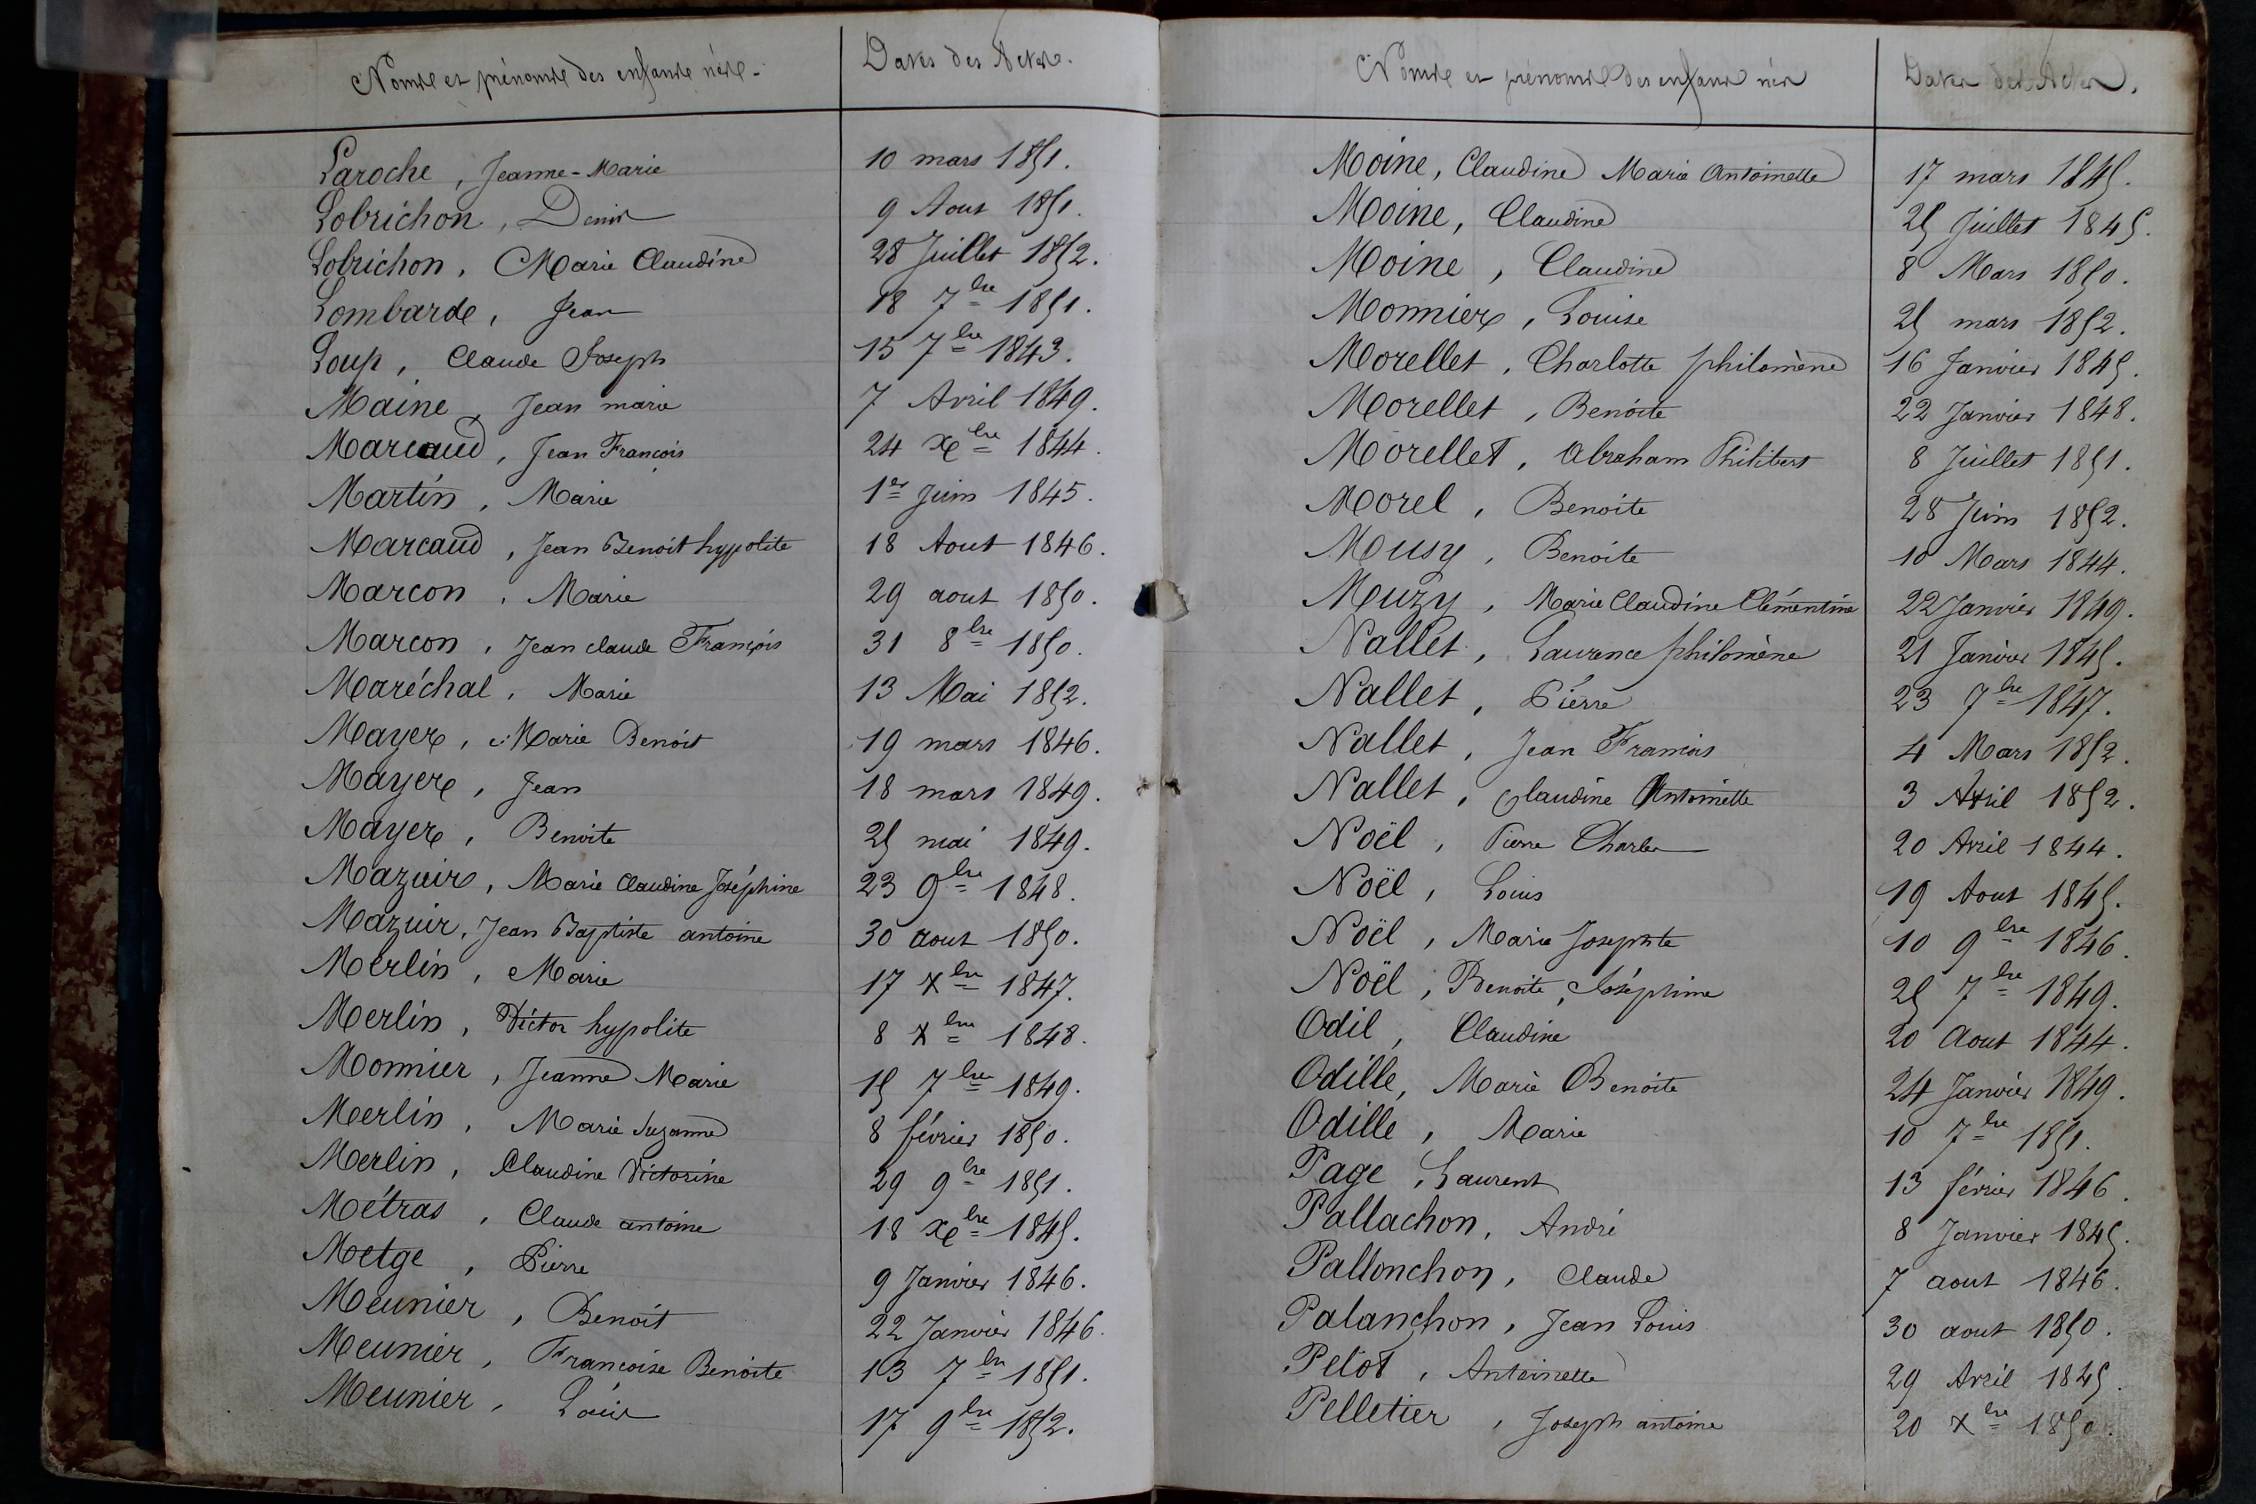 Noms et prénoms des enfants nés. Dates des Actes.
Laroche, Jeanne-Marie 10 mars 1851.
Lobrichon, Denis 9 Aout 1851.
Lobrichon, Marie Claudine 28 Juillet 1852.
Lombard, Jean 18 7bre 1851.
Loup, Claude Joseph 15 7bre 1843.
Maine, Jean marie 7 Avril 1849.
Marcaud, Jean François 24 Xbre 1844.
Martin, Marie 1er Juin 1845.
Marcaud, Jean Benoit hypolite 18 Aout 1846.
Marcon, Marie 29 aout 1850.
Marcon, Jean claude François 31 8bre 1850.
Maréchal, Marie 13 Mai 1852.
Mayer, Marie Benoit 19 mars 1846.
Mayer, Jean 18 mars 1849.
Mayer, Benoite 25 mai 1849.
Mazuir, Marie Claudine Joséphine 23 9bre 1848.
Mazuir, Jean Baptiste antoine 30 aout 1850.
Merlin, Marie 17 Xbre 1847.
Merlin, Victor hypolite 8 Xbre 1848.
Monnier, Jeanne Marie 15 7bre 1849.
Merlin, Marie Suzanne 8 février 1850.
Merlin, Claudine Victorine 29 9bre 1851.
Métras, Claude antoine 18 Xbre 1845.
Metge, Pierre 9 Janvier 1846.
Meunier, Benoit 22 Janvier 1846.
Meunier, Françoise Benoite 13 7bre 1851.
Meunier, Louis 17 9bre 1852.
Noms et prénoms des enfans nés Dates des Actes.
Moine, Claudine Marie Antoinette 17 mars 1845.
Moine, Claudine 25 Juillet 1845.
Moine, Claudine 8 Mars 1850.
Monnier, Louise 25 mars 1852.
Morellet, Charlotte philomène 16 Janvier 1845.
Morellet, Benoite 22 Janvier 1848.
Morellet, Abraham Philibert 8 Juillet 1851.
Morel, Benoite 28 Juin 1852.
Musy, Benoite 10 Mars 1844.
Muzy, Marie Claudine Clémentine 22 Janvier 1849.
Nallet, Laurence philomène 21 Janvier 1845.
Nallet, Pierre 23 7bre 1847.
Nallet, Jean François 4 Mars 1852.
Nallet, Claudine Antoinette 3 Avril 1852.
Noël, Pierre Charles 20 Avril 1844.
Noël, Louis 19 Aout 1845.
Noël, Marie Josephte 10 9bre 1846.
Noël, Benoite, Joséphine 25 7bre 1849.
Odil, Claudine 20 Aout 1844.
Odille, Marie Benoite 24 Janvier 1849.
Odille, Marie 10 7bre 1851.
Page, Laurent 13 février 1846.
Pallachon, André 8 Janvier 1845.
Pallonchon, Claude 7 aout 1846.
Palanchon, Jean Louis 30 aout 1850.
Pelot, Antoinette 29 Avril 1845.
Pelletier, Joseph antoine 20 Xbre 1850.